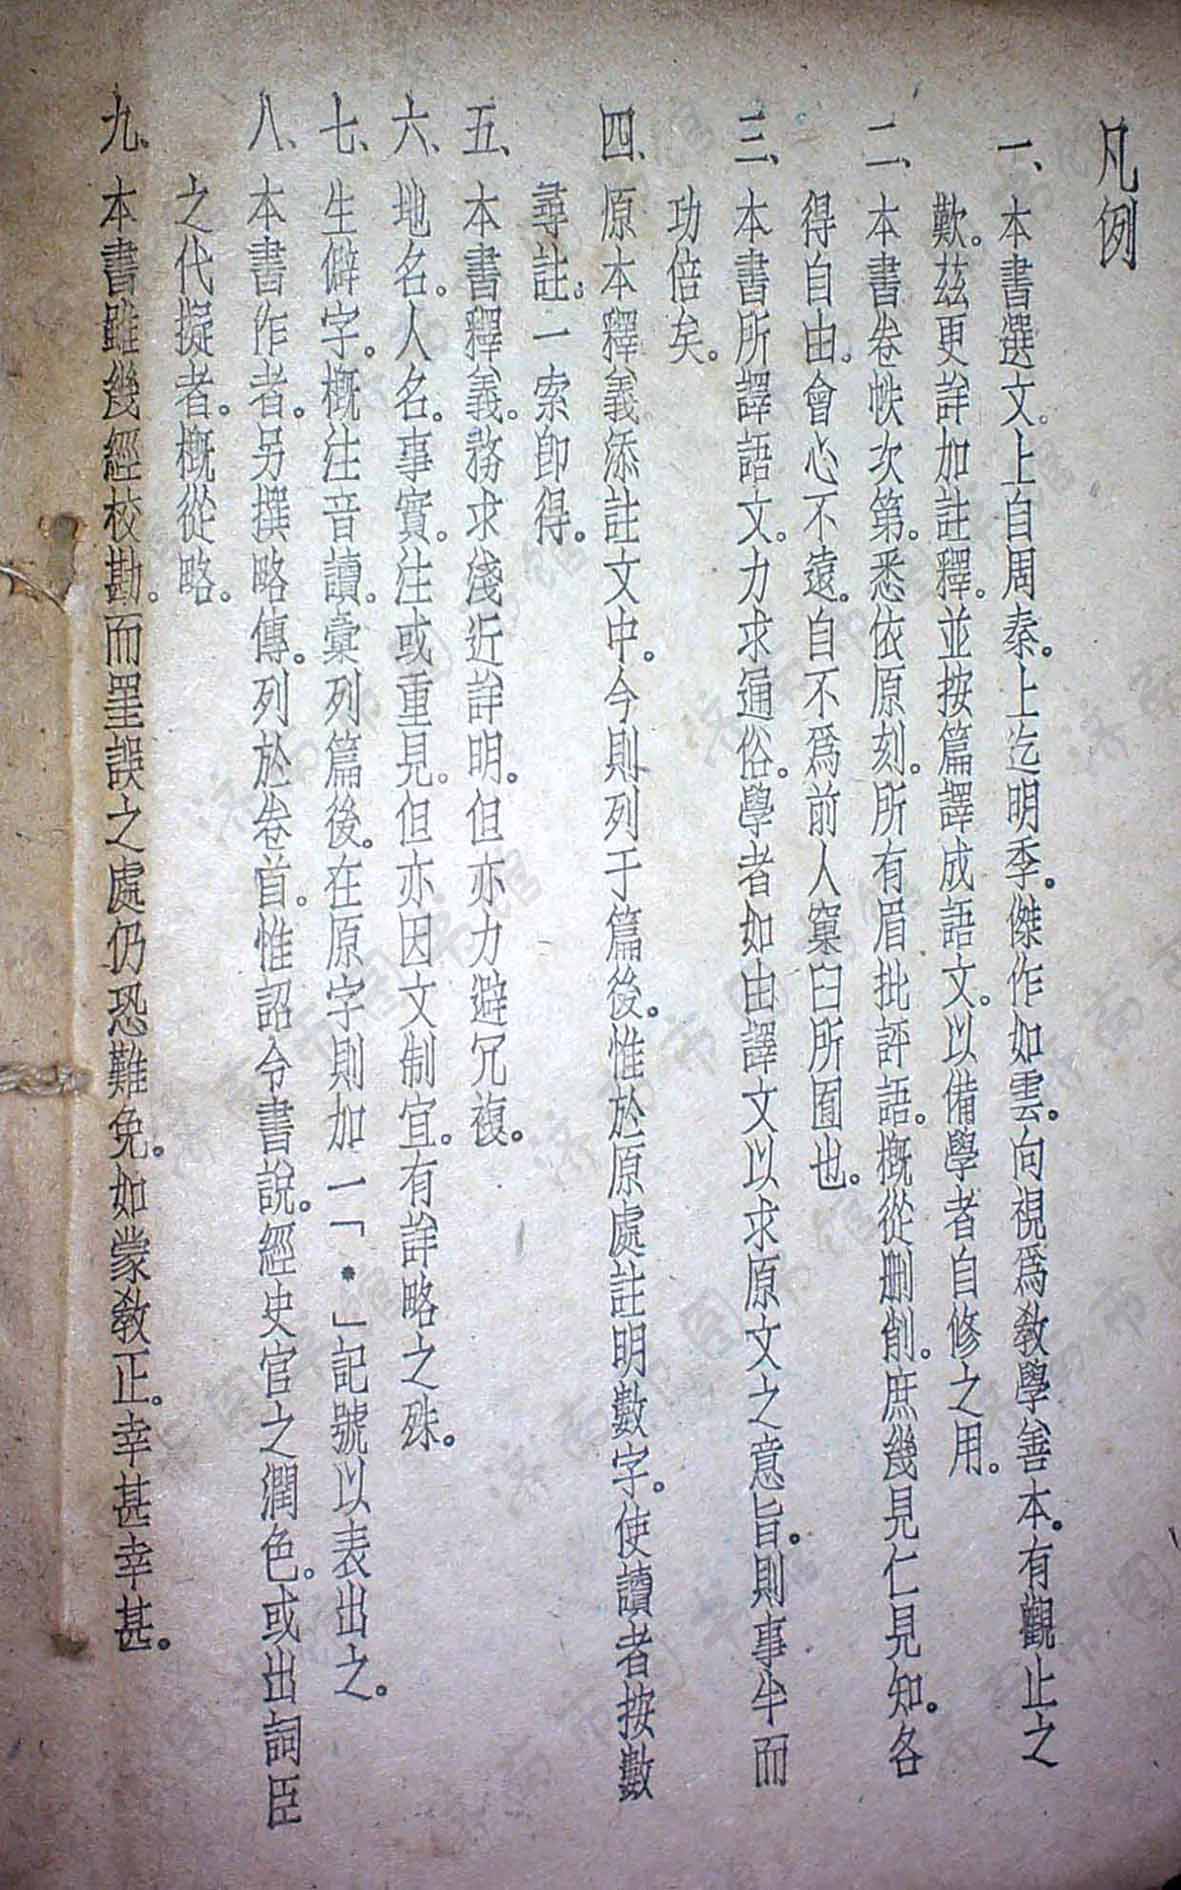 凡例
一、本書選文。上自周秦。上迄明季。傑作如雲。向視爲教學善本。有觀止之
歎。茲更詳加註釋。並按篇譯成語文。以備學者自修之用。
二、本書卷帙次第。悉依原刻。所有眉批評語。概從删削。庶幾見仁見知。各
得自由。會心不遠。自不爲前人窠臼所囿也。
三、本書所譯語文。力求通俗。學者如由譯文以求原文之意旨。則事半而
功倍矣。
四、原本釋義添註文中。今則列于篇後。惟於原處註明數字。使讀者按數
尋註。一索卽得。
五、本書釋義。務求淺近詳明。但亦力避冗複。
六、地名。人名。事實。注或重見。但亦因文制宜。有詳略之殊。
七、生僻字。概注音讀。彙列篇後。在原字則加一「•」記號以表出之。
八、本書作者。另撰略傳。列於卷首。惟詔令書說。經史官之潤色。或出詞臣
之代擬者。概從略。
九、本書雖幾經校勘。而罣誤之處仍恐難免。如蒙教正。幸甚幸甚。